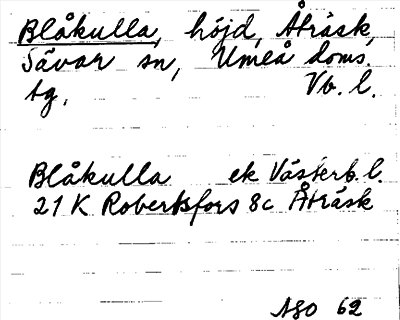 Blåkulla, höjd, Åträsk,
Sävar sn, Umeå doms.
tg. Vb. l.
Blåkulla ek Västerb. l.
21 K Robertsfors 8c Åträsk
ASO 62